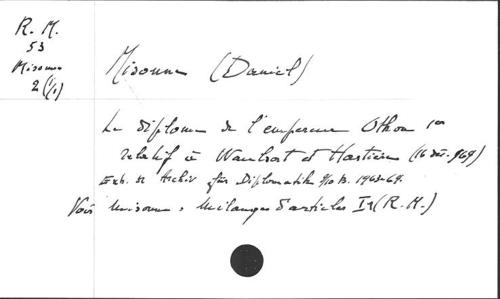 R. M.
53
Misonne
2 (1/1)
Misonne (Daniel)
Le diplome de l'empereur Othon 1er
relatif à Waulsort et Hastière (16 déc. 969)
Extr. de Archiv für Diplomatik 1963-64.
Voir Misonne : Mélanges d'articles I1 (R. M.)